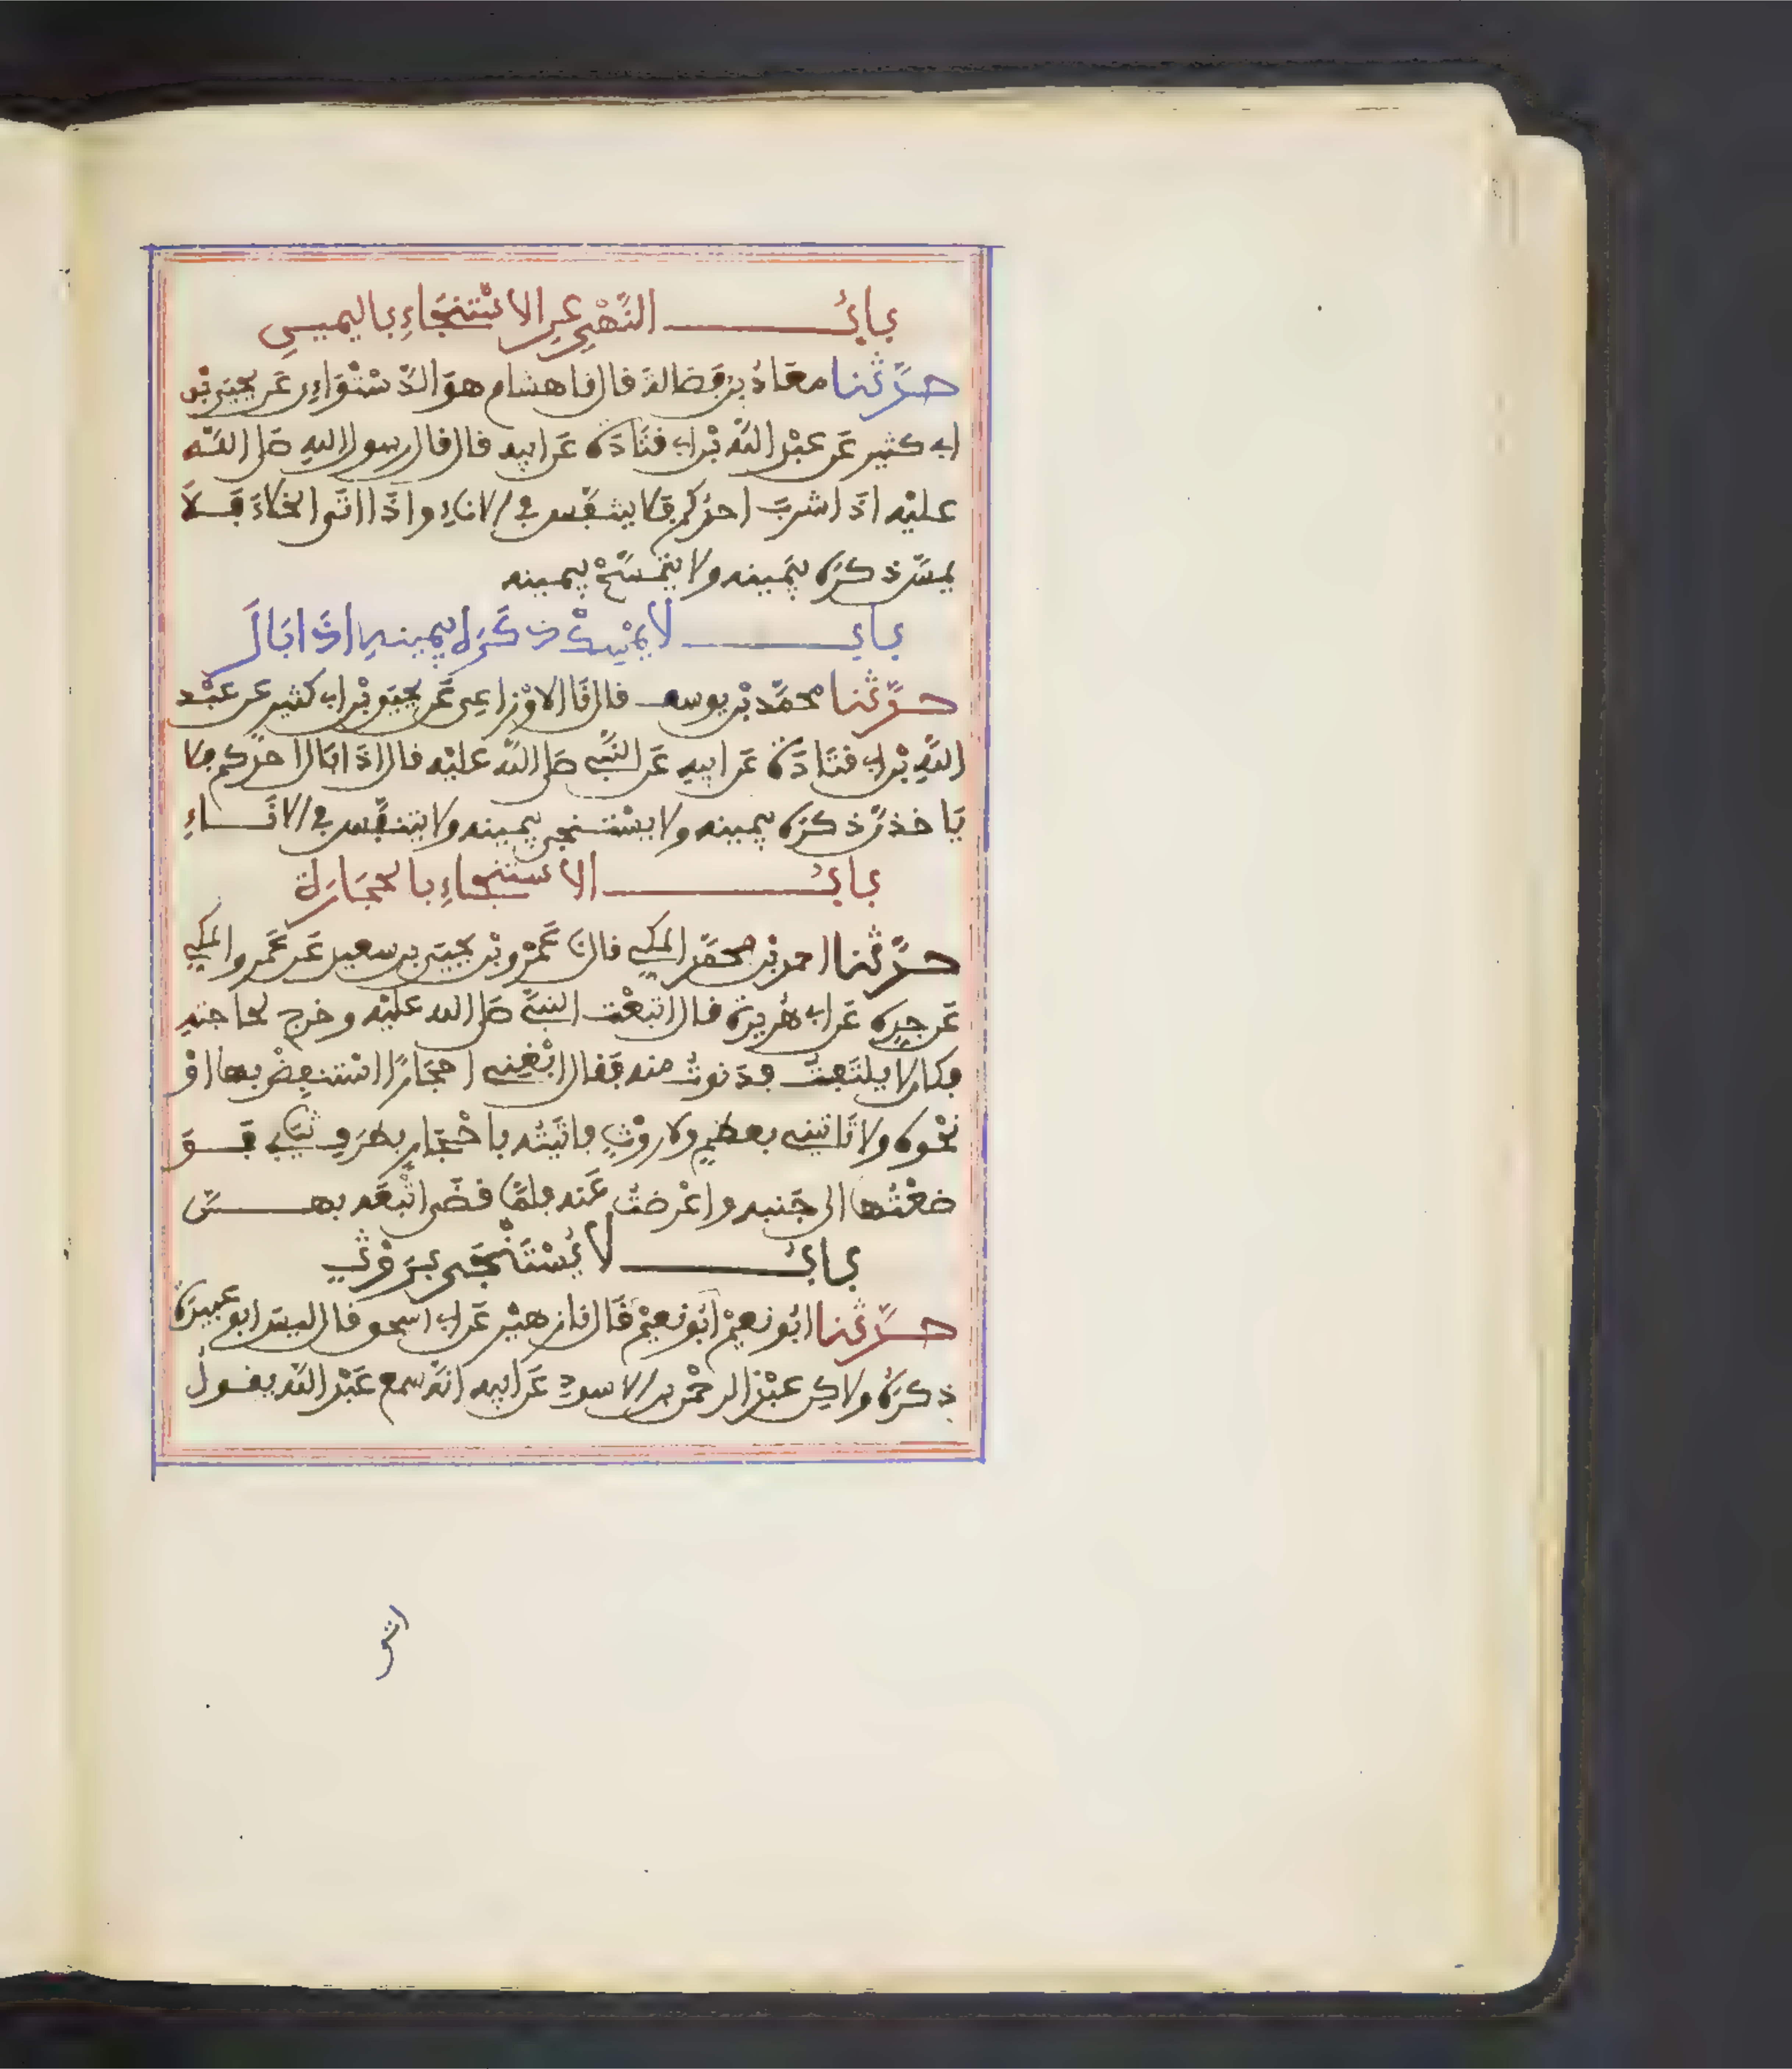 باب النَّهْيِ عنِ الاسْتنجَاءِ باليمينِ
حدَّثنا معَاذُ بن فَضالةَ قال نا هشام هوَ الدَّسْتَوَاءِي عَن يحيَى بْن
ابي كثير عَن عبْد الله بْن ابي قتَادَة عَن ابيه قال قال رسول اللهِ صَلى اللـه
عليْه اذَا شربَ احدُكم فَلا يتنفَّس في الاناءِ واذَا اتَى الخلاءَ فَـلا
يمسَّ ذكرَه بيَمينه ولا يتمَسَّحْ بيمينه
باب لا يمْسِكْ ذكَرَه بيمينهِ اذَا بَالَ
حدَّثنا محمَّد بْن يوسف قال نَا الاوْزاعِى عَن يحيَى بْن ابي كثير عَن عبْد
اللهِ بْن ابي قتَادَة عَن ابيهِ عَن النَّبي صَلى اللَّه عليْه قال اذَا بَال احدُكم فلا
يَاخذنَّ ذكرَه بيمينه ولا يسْتنجى بيمينه ولا يتنفَّس في الانَـاءِ
باب الاستنجاءِ بالحجَارَة
حدَّثنا احمد بن محمَّد المكي قال نَا عَمْرو بْن يحيَى بن سعيد عَن عَمرو المكي
عَن جدِه عَن ابي هُريرة قال اتبعْت النبيَّ صَلى الله عليْه وخرج لحاجتهِ
فكان لا يلتَفِتُ فدَنوتُ منه فَقال ابْغِني احجَارًا استنفِضْ بها اوْ
نحْوه ولا تَاتني بعظمٍ ولا روْثٍ فاتَيتُه باحْجَارٍ بطرَفِ ثيَابي فَـوَ
ضعْتُها الى جَنبه واعْرضتُ عَنه فلمَّا قضَى اتْبعَه بهـنَّ
باب لا يُسْتَنْجَى برَوْثٍ
حدَّثنا ابُو نعيْم ابُو نعيْم قَال نا زهيْر عَن ابي اسحق قال ليسَ ابو عبيدَة
ذكرَهُ ولاكِن عبْد الرحْمن بن الاسود عَن ابيه انَّه سمع عَبْد اللَّه يقـول